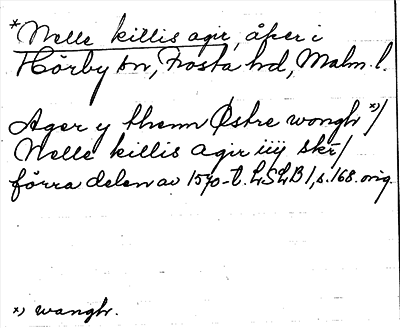 *Nelle killis agir, åker i
Hörby sn, Frosta hd, Malm. l.
Ager y thenn Østre wongh *)/
Nelle killis agir iiij skr/
förra delen av 1570-t. LSLB I, s. 168. orig.
*) wanghr.